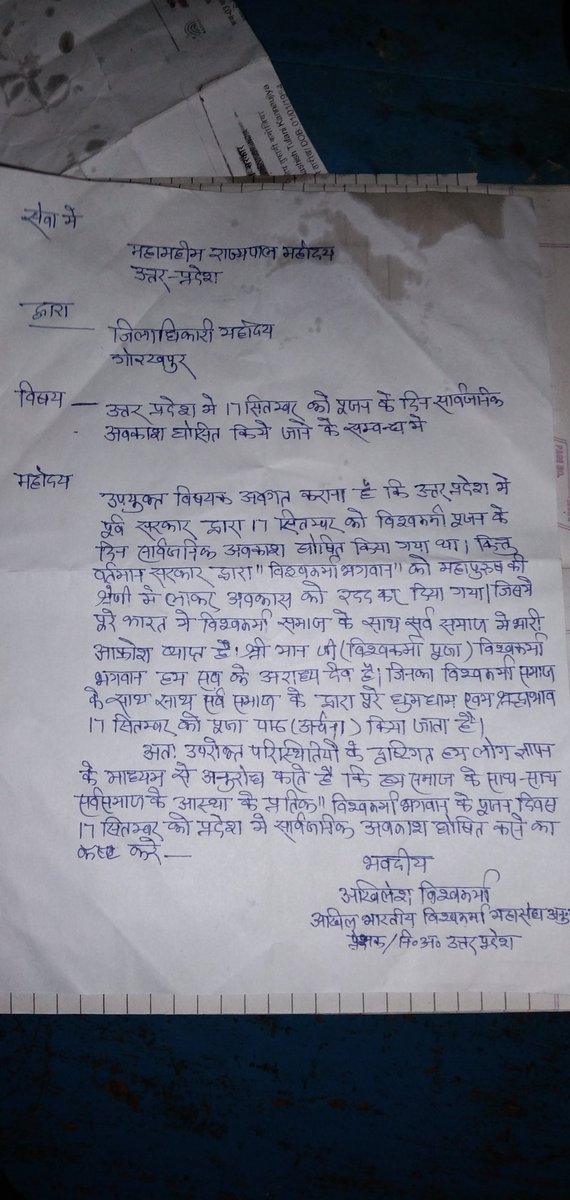 सेवा में
महामहीम राज्यपाल महोदय
उत्तर-प्रदेश
द्वारा
जिलाधिकारी महोदय
गोरखपुर
विषय — उत्तर प्रदेश मे 17 सितम्बर को पूजन के दिन सार्वजनिक
अवकाश घोसित किये जाने के सम्बन्ध मे
महोदय
उपयुक्त विषयक अवगत कराना है कि उत्तर प्रदेश मे
पूर्व सरकार द्वारा 17 सितम्बर को विश्वकर्मा पूजन के
दिन सार्वजनिक अवकाश घोषित किया गया था। किन्तु
वर्तमान सरकार द्वारा "विश्वकर्मा भगवान" को महापुरुष की
श्रेणी मे लाकर अवकास को रदद कर दिया गया। जिससे
पूरे भारत मे विश्वकर्मा समाज के साथ सर्व समाज मे भारी
आक्रोश व्याप्त है। श्री मान जी (विश्वकर्मा पूजा) विश्वकर्मा
भगवान हम सब के अराध्य देव है। जिनका विश्वकर्मा समाज
के साथ साथ सर्व समाज के द्वारा पूरे धुमधाम एवम श्रद्धाभाव
17 सितम्बर को पूजा पाठ (अर्चना) किया जाता है।
अतः उपरोक्त परिस्थितियो के दृष्टिगत हम लोग ज्ञापन
के माध्यम से अनुरोध करते है कि हम समाज के साथ-साथ
सर्वसमाज के आस्था के प्रतिक" विश्वकर्मा भगवान के पूजन दिवस
17 सितम्बर को प्रदेश मे सार्वजनिक अवकाश घोषित करने का
कष्ट करे —
भवदीय
अखिलेश विश्वकर्मा
अखिल भारतीय विश्वकर्मा महासंघ
उत्तर प्रदेश